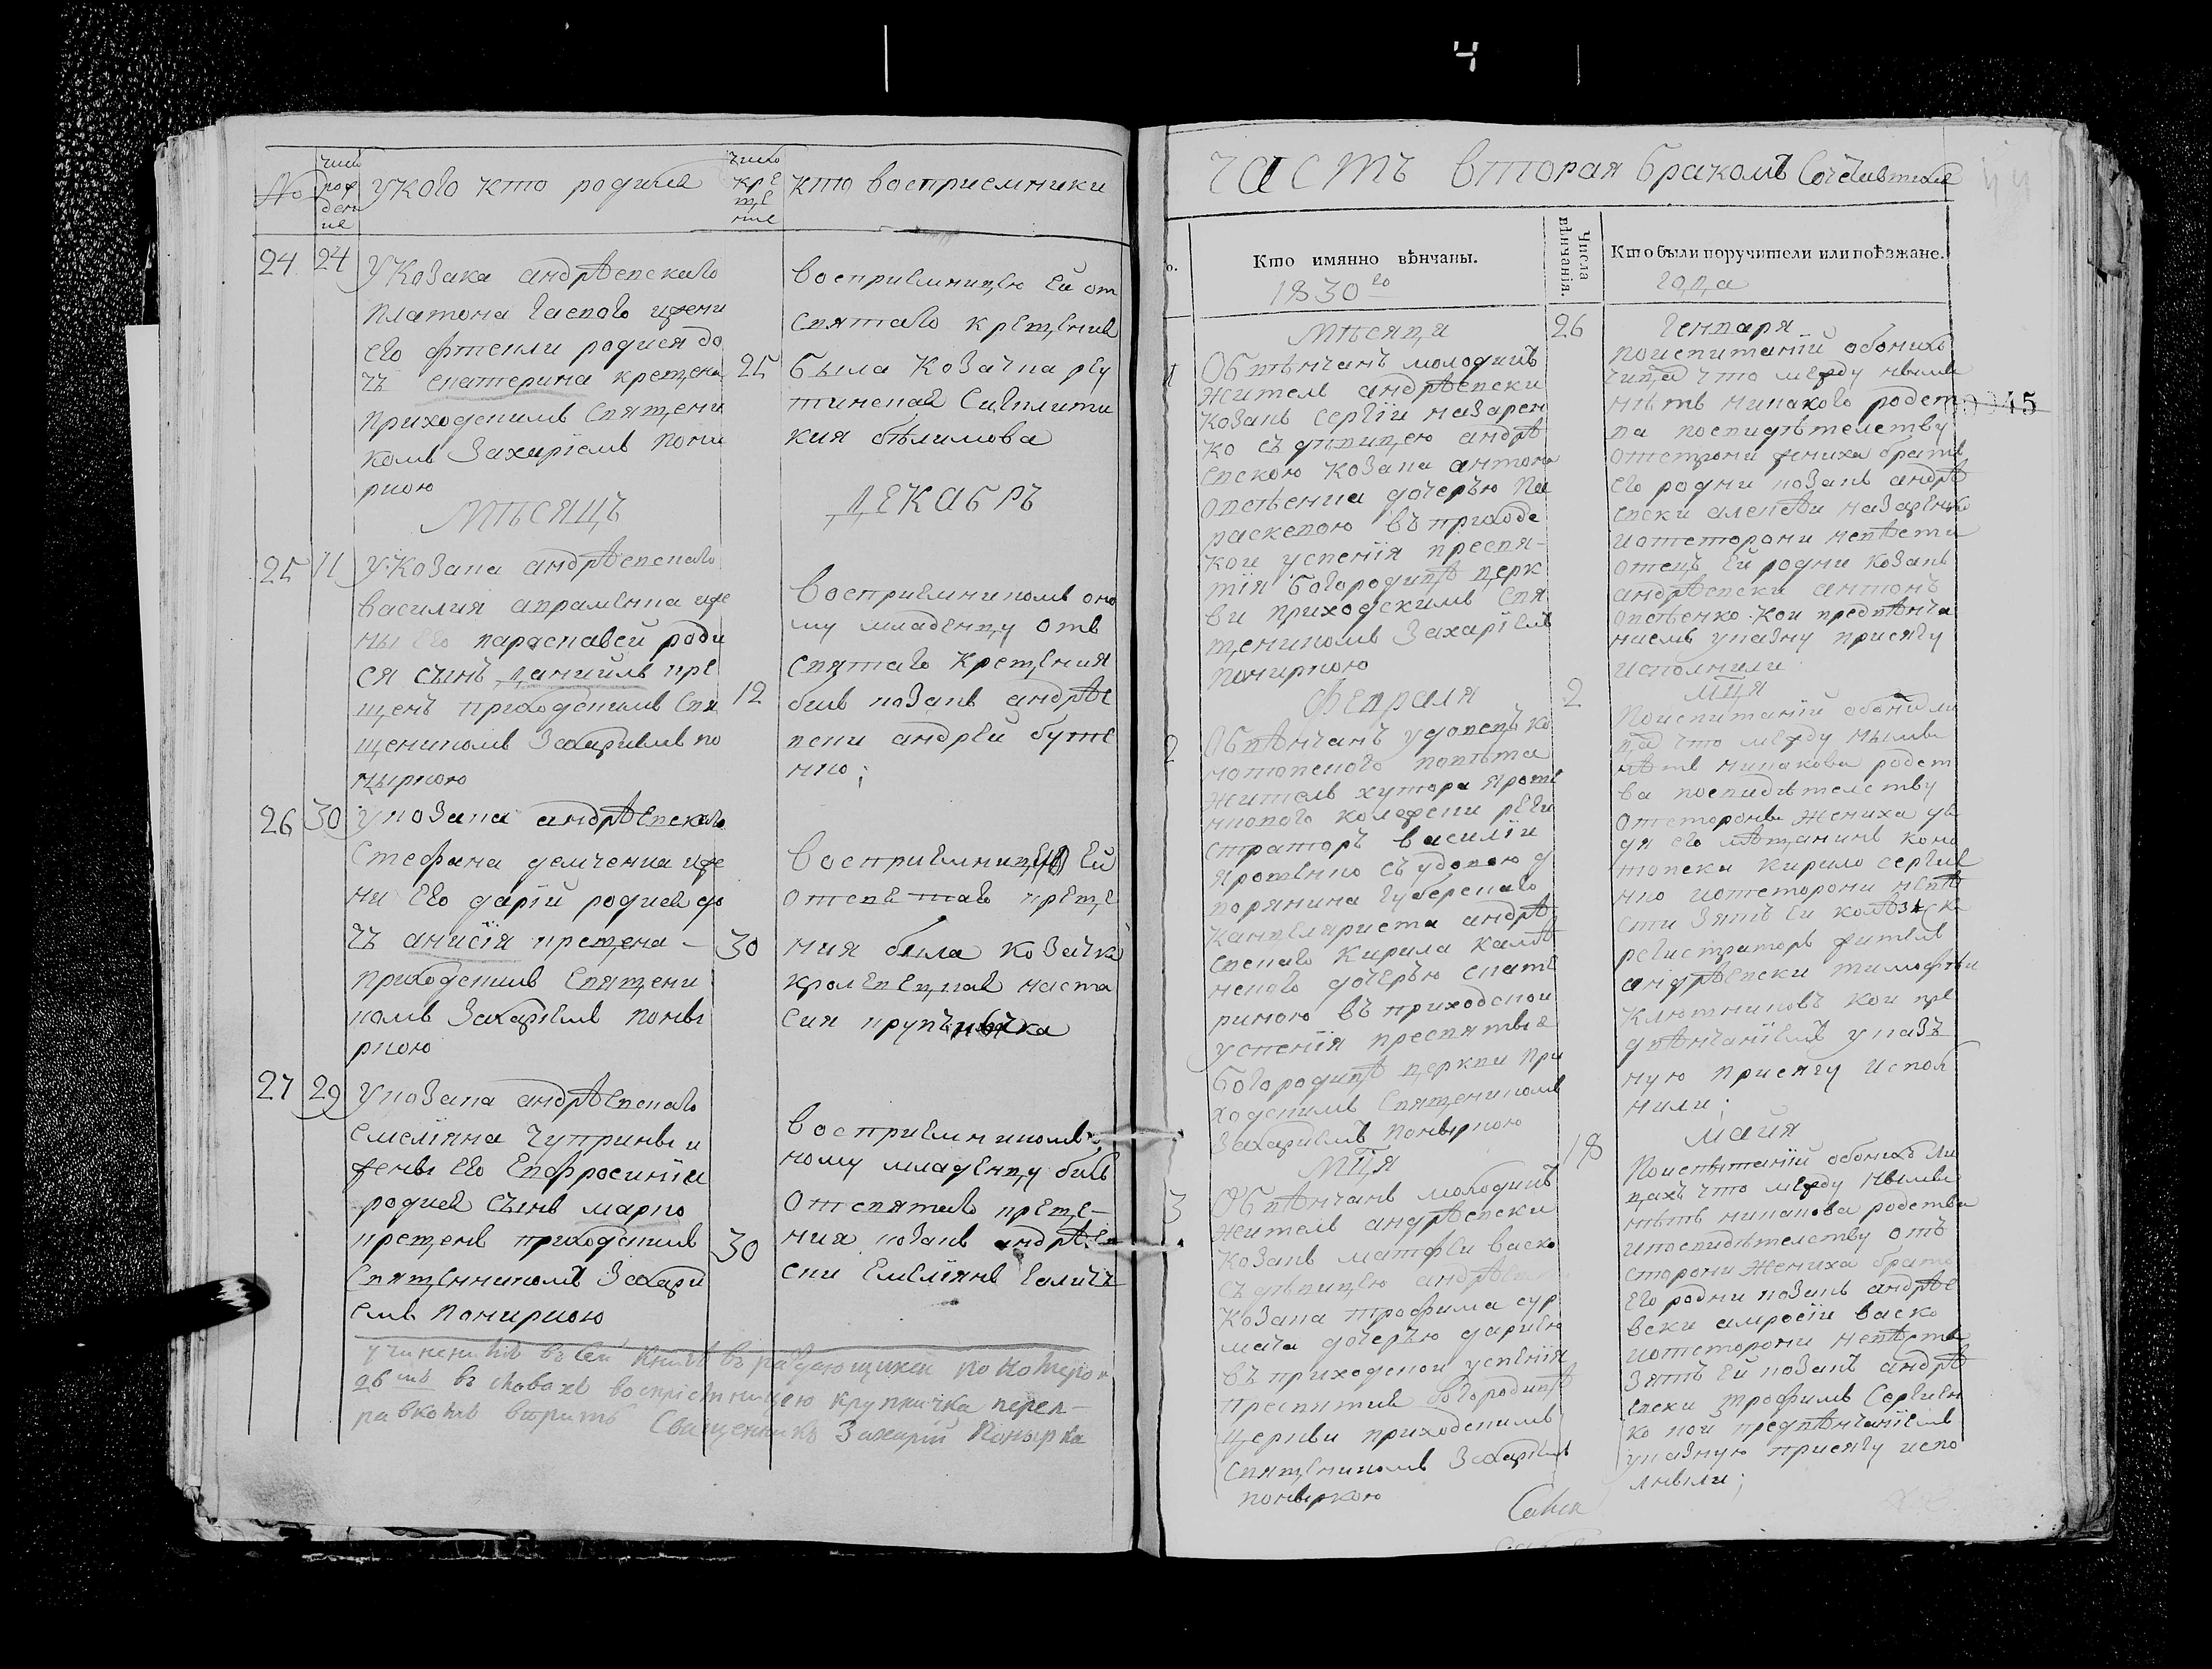 Ч
№
число рождение
у кого кто родился
число крещение
кто восприемники
24
24
у Козака андрѣевскаго
платона Гаевого и жени
его
родися до
чъ екатерина крещена
приходскимъ Священи
комъ Захаріемъ пони
ркою
25
восприемницею ей от
святаго крещения
была Козачка реу
тинская
кия бѣлимова
МѢСЯЦЪ
ДЕКАБРЬ
25
11
у Козака андрѣевскаго
василия авраменка и же
ны его параскавей роди
ся сынъ даниилъ кре
щенъ приходскимъ Свя
щеникомъ Захариемъ по
ныркою
12
восприемникомъ оно
му младенцу отъ
святаго Крещения
билъ козакъ андрѣе
вски андрей буте
нко;
26
30
у козака андрѣевскаго
Стефана демченка и же
ни Его дарiи родися до
чъ анисiя крещена -
приходскимъ Священи
комъ Захарiемъ поны
ркою
30
восприемницею Ей
от святаго креще
ния была козачка
кролевецкая наста
сия крупъничка
27
29
у козака андрѣевскаго
емелiяна Чуприны и
жены Его Евфросинiи
родися сынъ марко
крещенъ приходскимъ
Священникомъ Захари
емъ пониркою
30
восприемникомъ о
ному младенцу билъ
от святаго креще-
ния козакъ андрѣе
ски Емелiянъ Галичъ
въ сей книгѣ въ раждающихся по номером
26 мъ въ словахъ воспрiемницею крупничка
Священникъ Захарiй Понырка
часть вторая бракомъ Сочетавшихся
о.
Кто имянно вѣнчаны.
1830го
Числа вѣнчанія.
Кто были поручители или поѣзжане.
года
Мѣсяца
26
Генваря
1
Обвѣнчанъ молодикъ
житель андрѣевски
козакъ сергiи назарен
ко съ дѣвицею андрѣ
евскою козака антона
овсѣенка дочерью Па
раскевою въ приходс
кои успенiя пресвя-
тiя богородицѣ церк
ви приходскимъ Свя
щеникомъ Захарiемъ
Пониркою
по испитанiи обоихъ
что между нымы
нѣтъ никакого родст
ва по свидѣтелству
от строни жениха братъ
его родни козакъ андрѣ
евски алексѣи назаренко
и от сторони невѣсти
отецъ Ей родни козакъ
андрѣевски антонъ
овсѣенко кои предвѣнча
ниемъ указну присягу
исполнили
045
Февраля
2
мця
2
Обвѣнчанъ удовецъ ко
нотопского повѣта
житель хутора Ярошe
нкового колежски реги
страторъ василiи
Ярошенко съ удовою д
ворянина губерскаго
Канцеляриста андрѣ
евскаго Кирила
дочерью екате
риною въ приходской
успенiя пресвятыя
богородицѣ церкви при
ходскимъ Священикомъ
Захариемъ Поныркою
По испитанiи обоих ли
ца что между нымы
нѣтъ никакова родст
ва по свидѣтелству
от стороны жениха дя
дя его мѣщанинъ коно
топски кирило сергие
нко и от сторони невѣ
сти зять ей
регистраторъ житель
андрѣевски тимофѣи
Ключниковъ кои пре
двѣнчанiемъ указъ
ную присягу испол
нили;
мця
18
маия
3
Обвѣнчанъ молодикъ
житель андрѣевски
козакъ матфѣи васко
съ дѣвицею
козака трофима сур
мача дочерью дариею
въ приходской успенiя
пресвятия богородицѣ
церкви приходскимъ
Священикомъ Захарiемъ
поныркою
По испытанiи обоихъ ли
цахъ что между нымы
нѣтъ никакова родства
и по свидѣтелству отъ
сторони жениха братъ
его родни козакъ андрѣе
вски амросiи васко
и от сторони невѣсты
зять Ей козакъ андрѣ
евски трофимъ Сергиен
ко кои предвѣнчанiемъ
указную присягу испо
лныли;